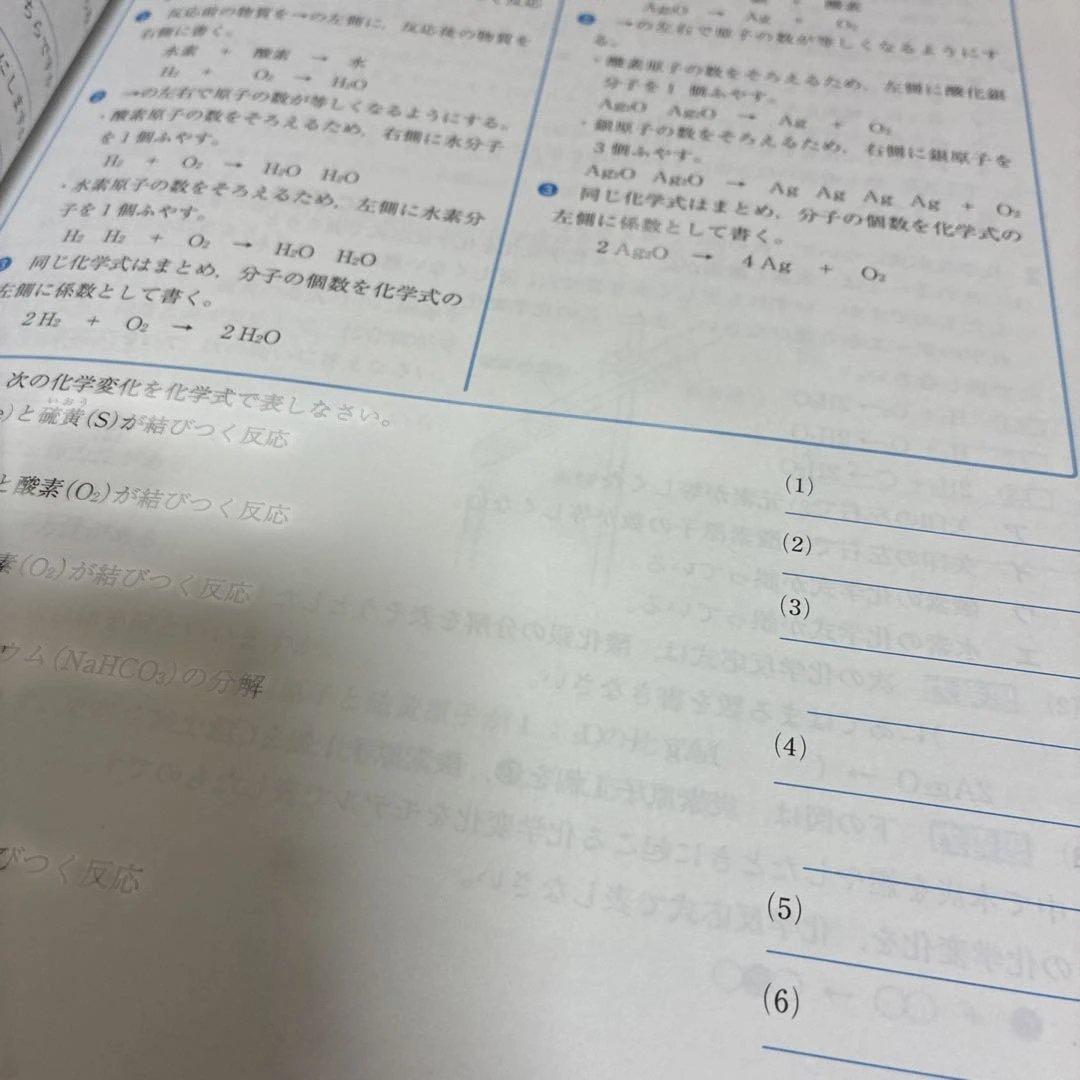 反応前の物質を→の左側に，反応後の物質を
右側に書く。
水素 + 酸素 → 水
H₂ + O₂ → H₂O
❷ →の左右で原子の数が等しくなるようにする。
・酸素原子の数をそろえるため，右側に水分子
を1個ふやす。
H₂ + O₂ → H₂O H₂O
・水素原子の数をそろえるため，左側に水素分
子を1個ふやす。
H₂ H₂ + O₂ → H₂O H₂O
同じ化学式はまとめ，分子の個数を化学式の
左側に係数として書く。
2H₂ + O₂ → 2H₂O
酸素
Ag₂O → Ag + O₂
❷ →の左右で原子の数が等しくなるようにす
る。
・酸素原子の数をそろえるため，左側に酸化銀
分子を1個ふやす。
Ag₂O Ag₂O → Ag + O₂
・銀原子の数をそろえるため，右側に銀原子を
3個ふやす。
Ag₂O Ag₂O → Ag Ag Ag Ag + O₂
❸ 同じ化学式はまとめ，分子の個数を化学式の
左側に係数として書く。
2Ag₂O → 4Ag + O₂
次の化学変化を化学式で表しなさい。
)と硫黄(S)が結びつく反応
いおう
と酸素(O₂)が結びつく反応
素(O₂)が結びつく反応
ウム(NaHCO₃)の分解
びつく反応
(1)
(2)
(3)
(4)
(5)
(6)